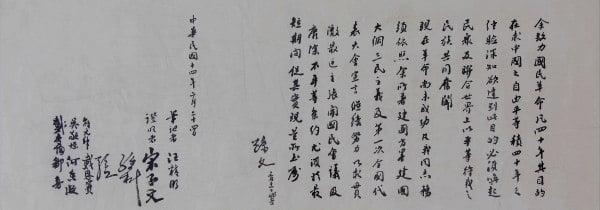 余致力國民革命凡四十年其目的
在求中國之自由平等積四十年之
經驗深知欲達到此目的必須喚起
民眾及聯合世界上以平等待我之
民族共同奮鬥
現在革命尚未成功凡我同志務
須依照余所著建國方略建國
大綱三民主義及第一次全國代
表大會宣言繼續努力以求貫
澈最近主張開國民會議及
廢除不平等條約尤須於最
短期間促其實現是所至囑
孫文
中華民國十四年二月二十四日
筆記者 汪精衛
證明者 宋子文
孫科
邵元冲 戴恩賽
吳敬恆 何香凝
戴季陶 鄒魯